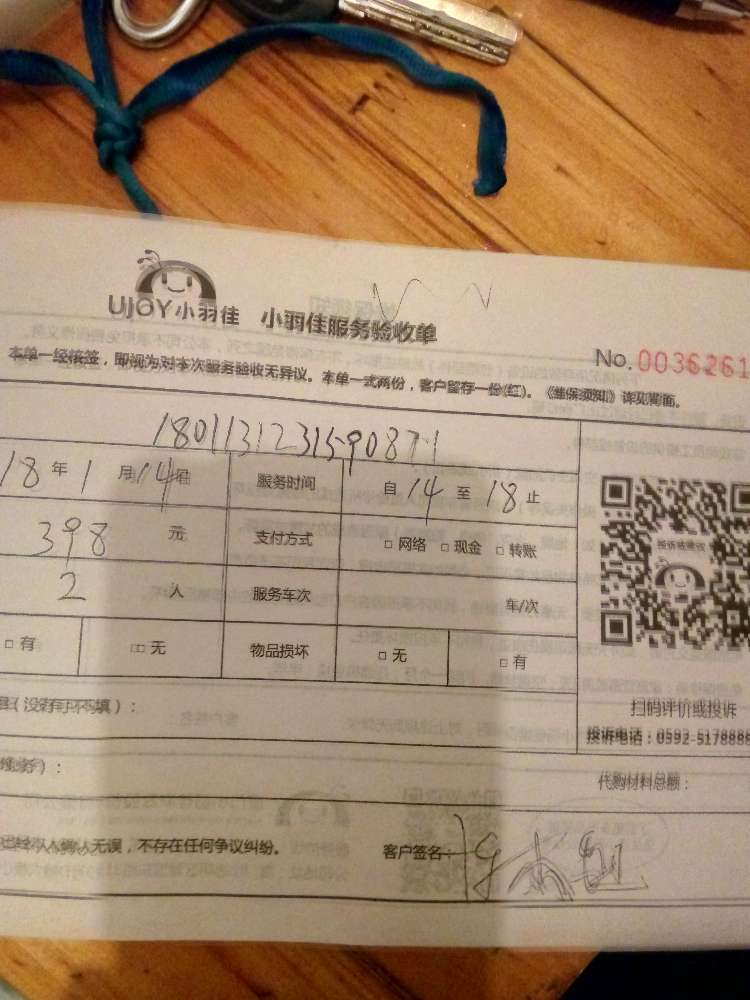 UJOY小羽佳 小羽佳服务验收单
No.0036261
本单一经核签，即视为对本次服务验收无异议。本单一式两份，客户留存一份(红)。《维保须知》详见背面。
18年1月14日 服务时间 自14至18止
398元 支付方式 □ 网络 □ 现金 □ 转账
2人 服务车次 车/次
□ 有 □ 无 物品损坏 □ 无 □ 有
(没有可不填)：
扫码评价或投诉
投诉电话：0592-5178888
代购材料总额：
无误，不存在任何争议纠纷。 客户签名：